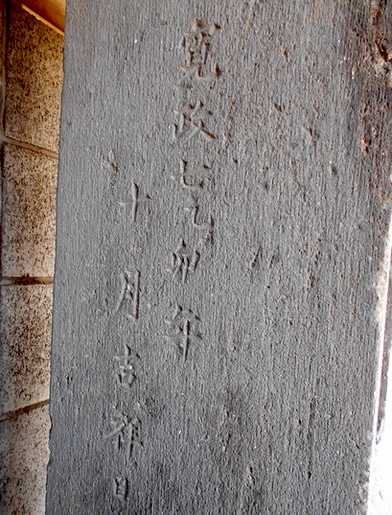 寛政七乙卯年
十月吉祥日